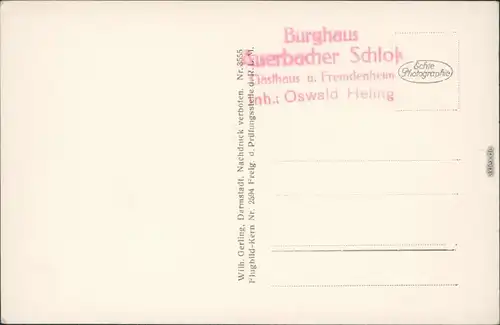 Burghaus
Auerbacher Schloß
Gasthaus u. Fremdenheim
Inh.: Oswald Helmg
Echte
Photographie
Wilh. Gerling, Darmstadt. Nachdruck verboten. Nr. 3555
Flugbild-Kern Nr. 2594 Freig. d. Prüfungsstelle d. R. L. M.